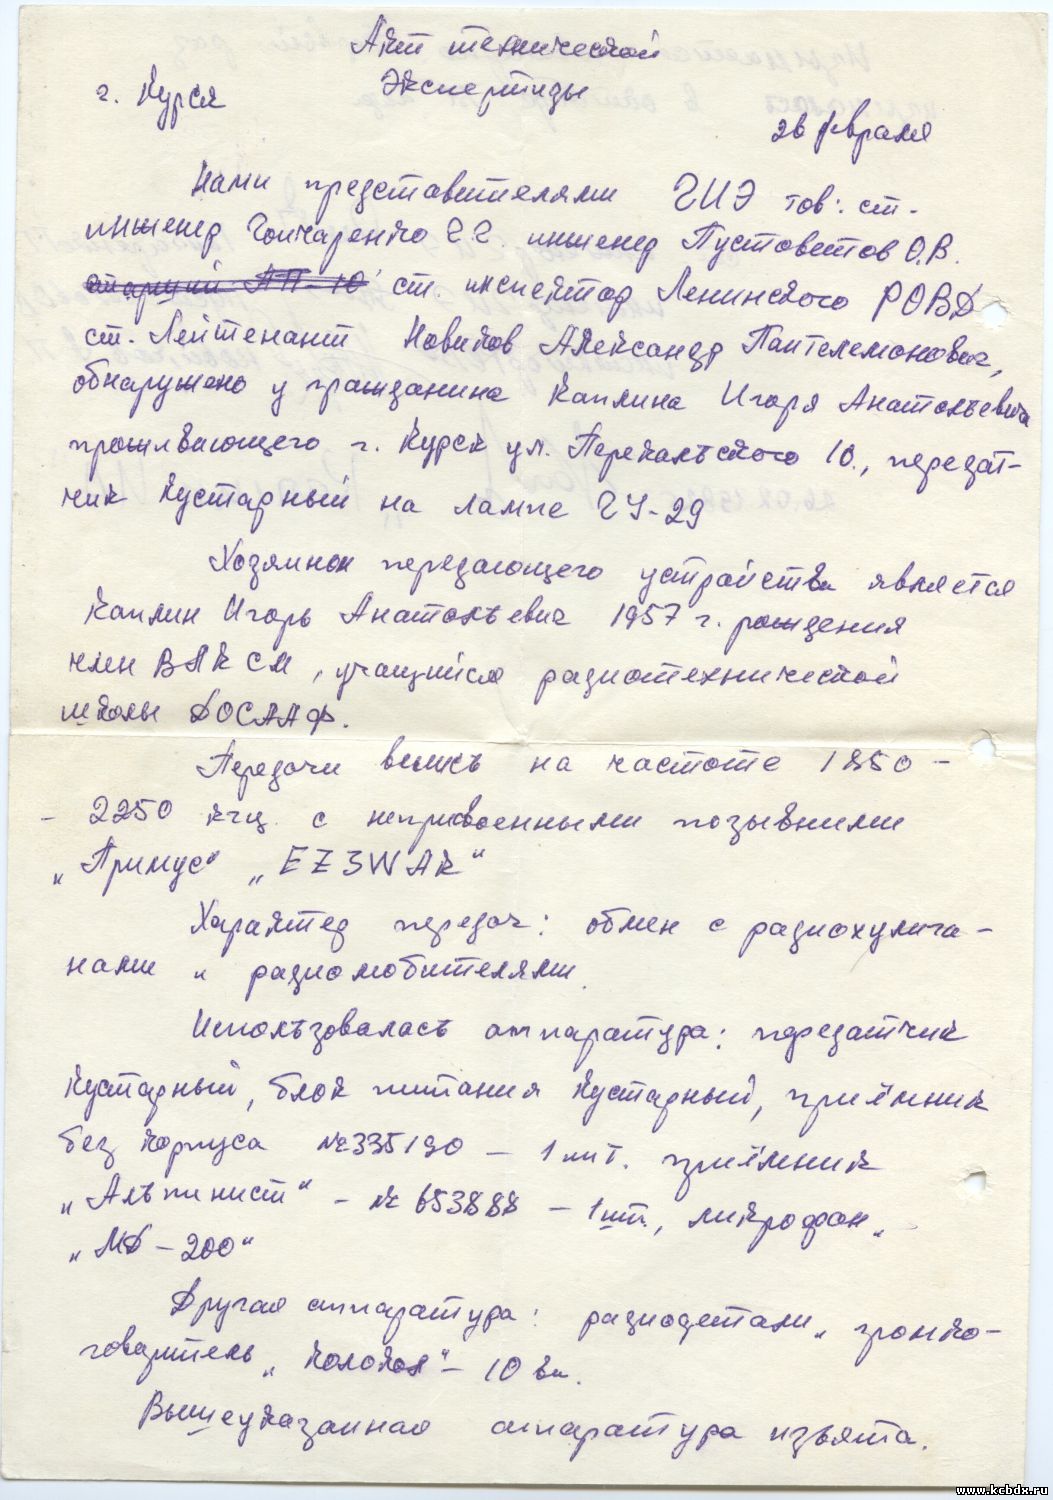 Акт технической
экспертизы
г. Курск
26 февраля
Нами представителями ГИЭ тов: ст.
инженер Гончаренко Г.Г. инженер Пустоветов О.В.
старший АП-10 ст. инспектор Ленинского РОВД
ст. Лейтенант Новиков Александр Пантелемонович,
обнаружено у гражданина Каплина Игоря Анатольевича
проживающего г. Курск ул. Перекальского 10., передат-
чик кустарный на лампе ГУ-29
Хозяином передающего устройства является
Каплин Игорь Анатольевич 1957 г. рождения
член ВЛКСМ, учащийся радиотехнической
школы ДОСААФ.
Передачи велись на частоте 1850 -
- 2250 кгц. с неприсвоенными позывними
„Примус" „EZ3WAK"
Характер передач: обмен с радиохулига-
нами и радиолюбителями.
Использовалась аппаратура: передатчик
кустарный, блок питания кустарный, приёмник
без корпуса №335190 - 1 шт. приёмник
„Альпинист" - № 653888 - 1 шт., микрофон „
„МД-200"
Другая аппаратура: радиодетали, громко-
говоритель „колокол" - 10 вт.
Вышеуказанная аппаратура изъята.
www.kcbdx.ru